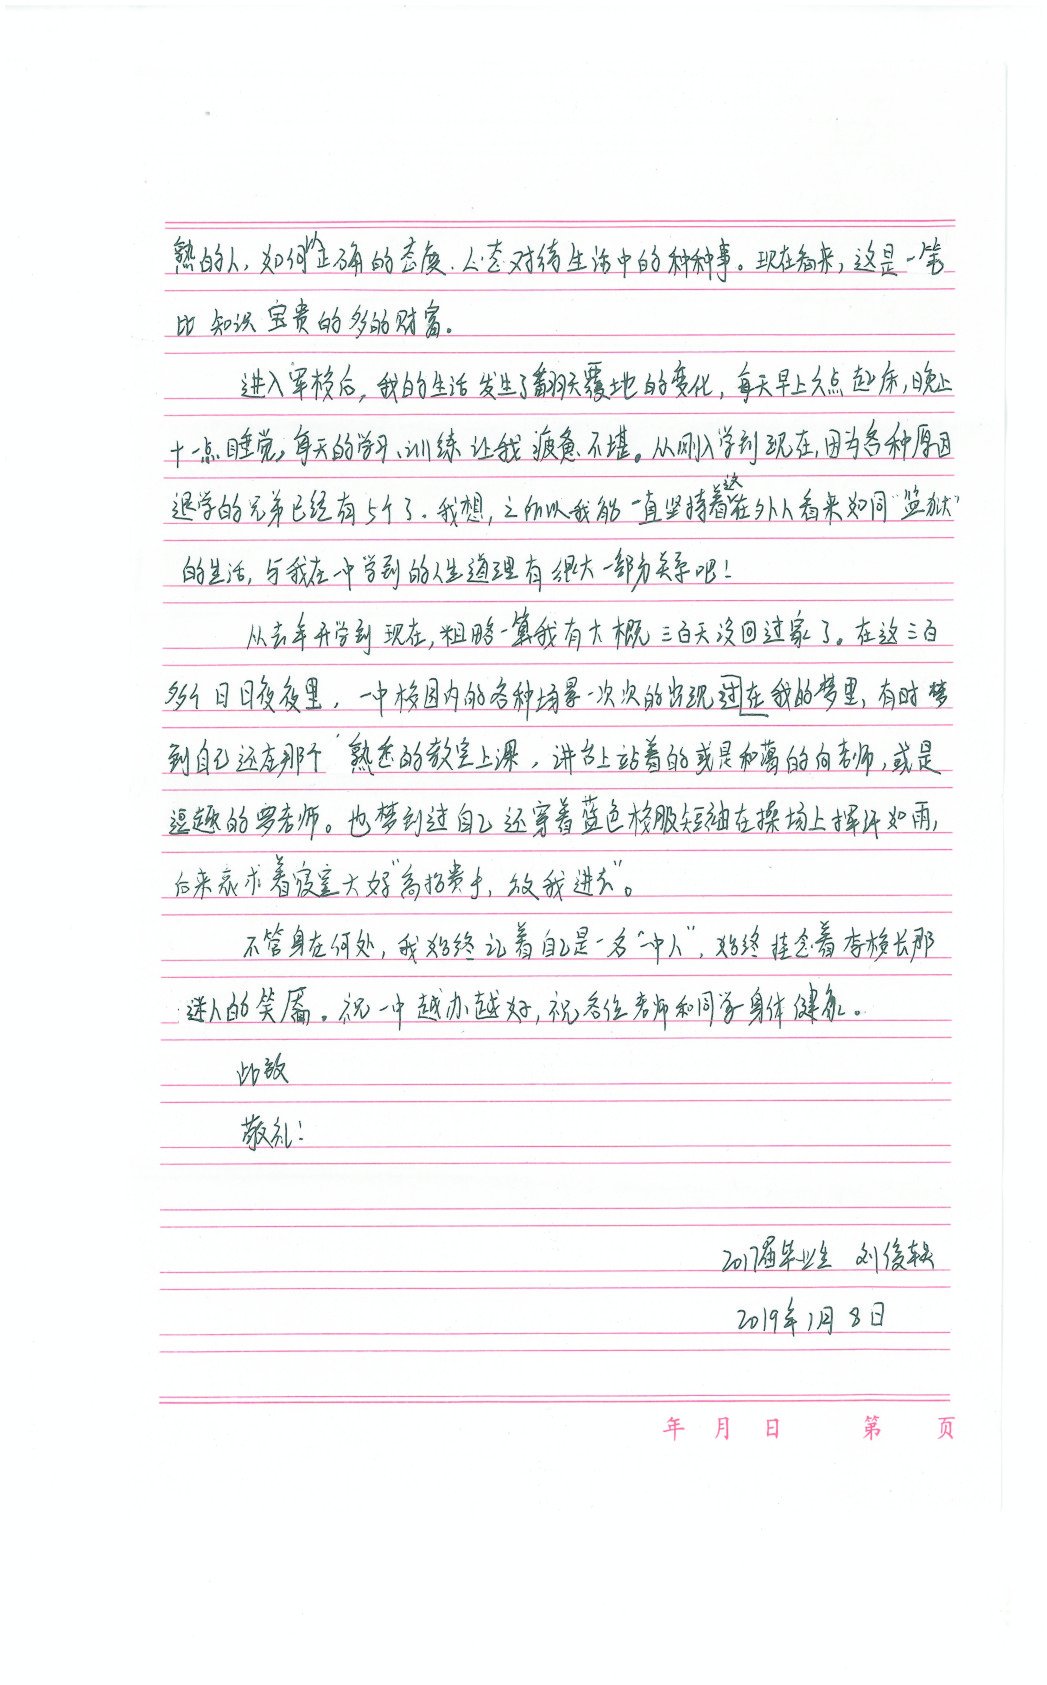 熟的人，如何以正确的态度、心态对待生活中的种种事。现在看来，这是一笔
比知识宝贵的多的财富。
进入军校后，我的生活发生了翻天覆地的变化，每天早上六点起床，晚上
十一点睡觉，每天的学习、训练让我疲惫不堪。从刚入学到现在，因为各种原因
退学的兄弟已经有5个了。我想，之所以我能一直坚持着这在外人看来如同“监狱”
的生活，与我在一中学到的人生道理有很大一部分关系吧！
从去年开学到现在，粗略一算我有大概三百天没回过家了。在这三百
多个日日夜夜里，一中校园内的各种场景一次次的出现过在我的梦里，有时梦
到自己还在那个熟悉的教室上课，讲台上站着的或是和蔼的向老师，或是
逗趣的罗老师。也梦到过自己还穿着蓝色校服短袖在操场上挥汗如雨，
后来哀求着寝室大妈“高抬贵手，放我进去”。
不管身在何处，我始终记着自己是一名“一中人”，始终挂念着李校长那
迷人的笑靥。祝一中越办越好，祝各位老师和同学身体健康。
此致
敬礼！
2017届毕业生 刘俊
2019年1月8日
年 月 日 第 页